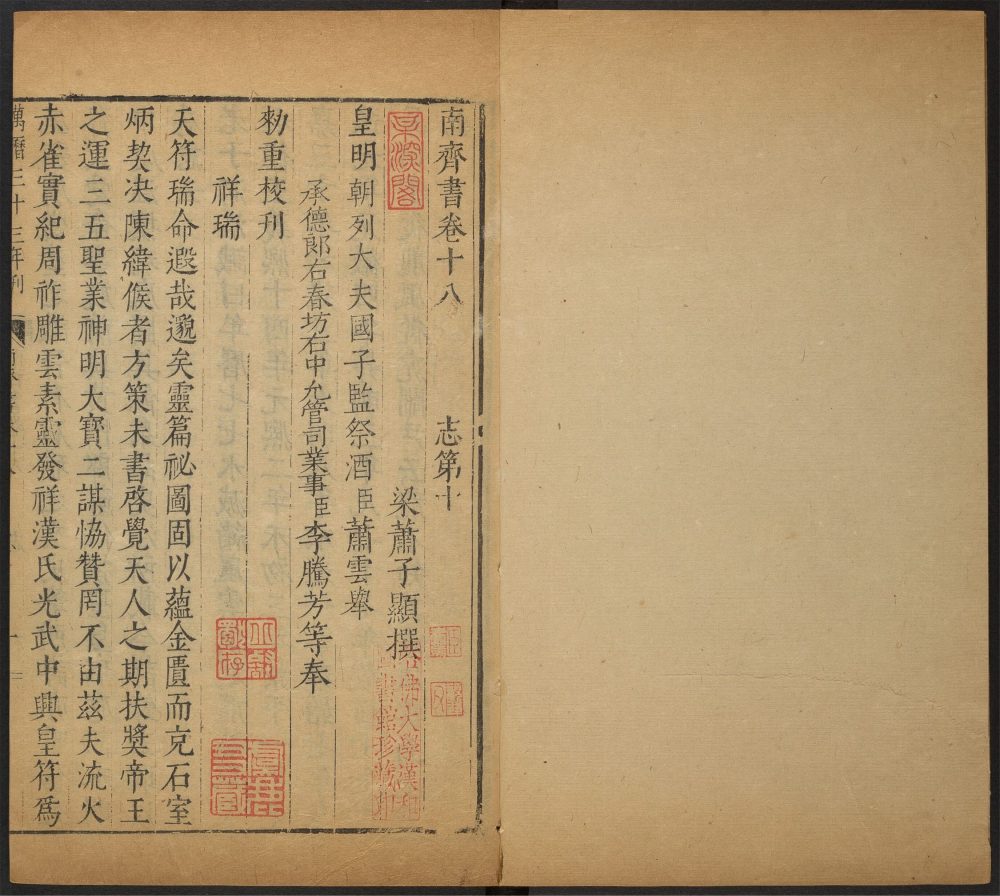 南齊書卷十八 志第十
梁蕭子顯撰
皇明朝列大夫國子監祭酒臣蕭雲舉
承德郎右春坊右中允管司業事臣李騰芳等奉
勑重校刊
祥瑞
天符瑞命遐哉邈矣靈篇祕圖固以蘊金匱而克石室
炳契决陳緯候者方策未書啓覺天人之期扶獎帝王
之運三五聖業神明大寳二謀恊贊罔不由茲夫流火
赤雀實紀周祚雕雲素靈發祥漢氏光武中興皇符爲
萬曆三十三年刊
哈佛大學漢和
圖書館珍藏印